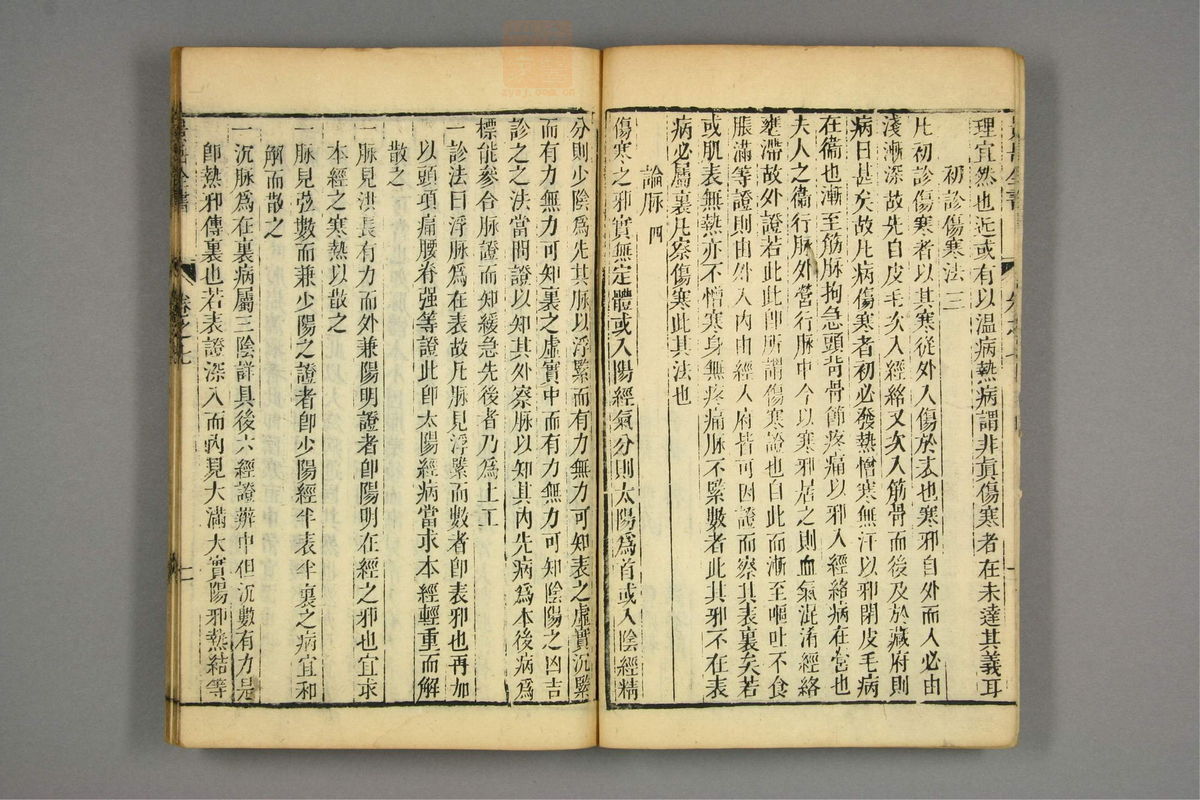 理宜然也近或有以温病熱病謂非眞傷寒者在未達其義耳
初診傷寒法 三
凡初診傷寒者以其寒從外入傷於表也寒邪自外而入必由
淺漸深故先自皮毛次入經絡又次入筋骨而後及於藏府則
病日甚矣故凡病傷寒者初必發熱憎寒無汗以邪閉皮毛病
在衞也漸至筋脉拘急頭背骨節疼痛以邪入經絡病在營也
夫人之衞行脉外營行脉中今以寒邪居之則血氣混淆經絡
壅滯故外證若此此卽所謂傷寒證也自此而漸至嘔吐不食
脹滿等證則由外入内由經入府皆可因證而察其表裏矣若
或肌表無熱亦不憎寒身無疼痛脉不緊數者此其邪不在表
病必屬裏凡察傷寒此其法也
論脉 四
傷寒之邪實無定體或入陽經氣分則太陽爲首或入陰經精
分則少陰爲先其脉以浮緊而有力無力可知表之虛實沉緊
而有力無力可知裏之虛實中而有力無力可知陰陽之凶吉
診之之法當問證以知其外察脉以知其内先病爲本後病爲
標能參合脉證而知緩急先後者乃爲上工
一診法曰浮脉爲在表故凡脉見浮緊而數者卽表邪也再加
以頭項痛腰脊强等證此卽太陽經病當求本經輕重而解
散之
一脉見洪長有力而外兼陽明證者卽陽明在經之邪也宜求
本經之寒熱以散之
一脉見弦數而兼少陽之證者卽少陽經半表半裏之病宜和
解而散之
一沉脉爲在裏病屬三陰詳具後六經證辨中但沉數有力是
卽熱邪傳裏也若表證深入而内見大滿大實陽邪熱結等
全書
卷之七